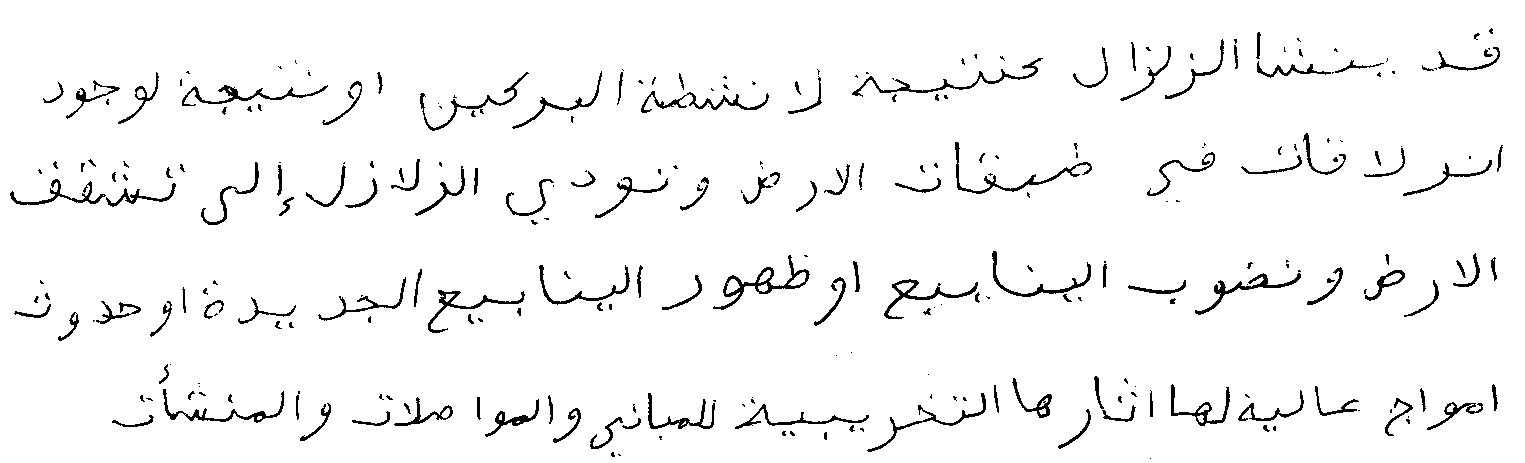 قد ينشا الزلزال كنتيجة لانشطة البركين او نتيجة لوجود
انزلاقات في طبقات الارض وتودي الزلازل إلى تشقف
الارض ونضوب الينابيع او ظهور الينابيع الجديدة او حدوث
امواج عالية لها اثارها التخريبية للمباني والمواصلات والمنشأت